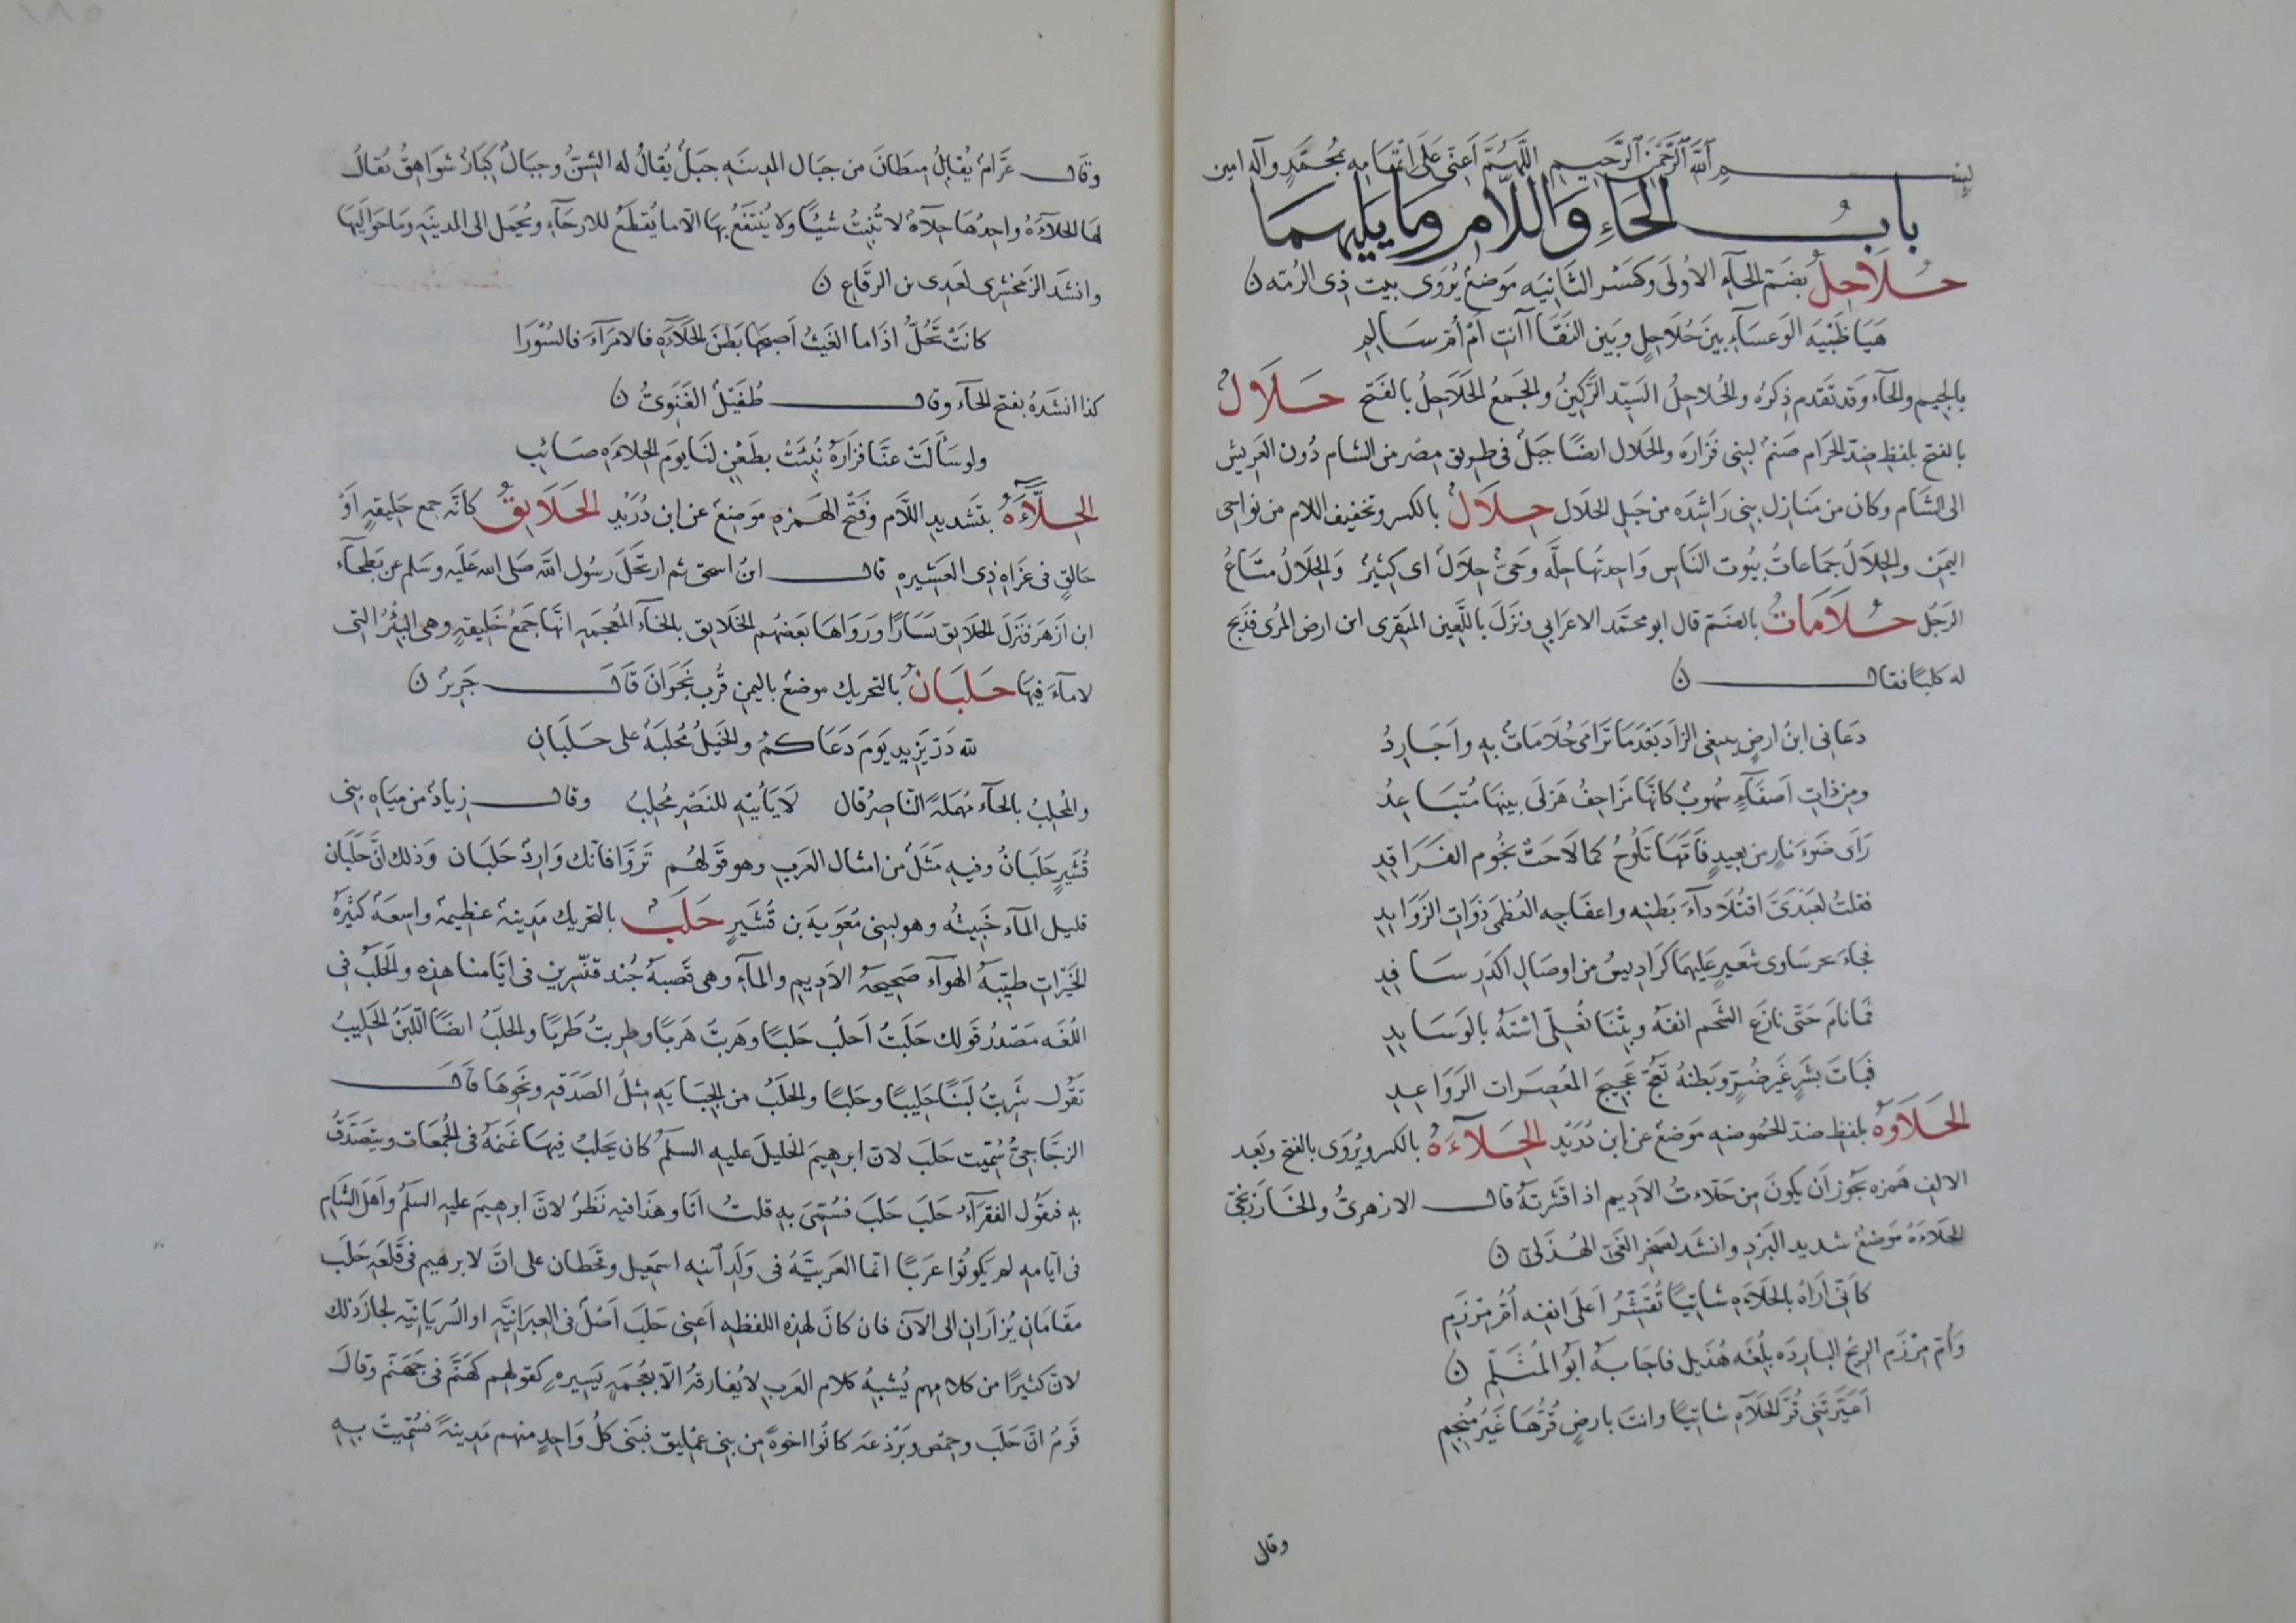 بسم الله الرحمن الرحيم اللهم أعني على اتمامه بمحمد وآله امين
باب الحاء واللام وما يليهما
حُلاحِلُ بضم الحآء الاولى وكسر الثانيه موضع يُروى بيت ذى الرمه ن
هَيَا ظَبْيَه الوعسآء بين حُلاحِلٍ وبين النقا اانتِ أم أُمّ سالمِ
بالجيم والحآء وقد تقدم ذكره والحُلاحِلُ السيّد الرَّكينُ والجمعُ الحَلاحِلُ بالفتح حَلَالُ
بالفتح بلفظ ضد الحرام صنم لبنى فزاره والحلال ايضًا جبلٌ فى طريق مصر من الشام دُون العريش
الى الشام وكان من منازل بنى راشده من جبل الحلال حِلَالُ بالكسر وتخفيف اللام من نواحى
اليمن والحِلالُ جماعاتُ بيُوت الناس واحدتها حِلَّه وحَيٌّ حِلالٌ اى كثيرٌ والحِلالُ متاعُ
الرَجُل حُلَامَاتُ بالضم قال ابو محمد الاعرابي ونزَلَ باللَّعين المنقرى ابن ارض المرى فذبح
له كلبًا فقال ن
دَعانى ابنُ ارضٍ يبتغى الزاد بَعْدَما تَرامَى حُلامَاتٌ بهِ وأجَارِدُ
ومِن ذاتِ اَصفآءٍ سُهوبٌ كانها مَزَاحِفُ هَزلَى بينها مُتباعِدُ
رَأى ضوءَ نارٍ من بعيدٍ فأَمَّها تَلُوحُ كما لاحت نجُوم الفَرَاقِدِ
فقلتُ لعَبْدَىَّ اقتُلَا دآءَ بطنِه واعفاجه العُظمى ذوات الزوايدِ
فجاءَ بحرساوى شعيرٍ عليهما كراديسُ من اوصَالِ اكدَرَ سافِدِ
فما نامَ حتى نازعَ الشحم انفَهُ وبِتْنَا نُعَلّى استَهُ بالوسايدِ
فباتَ بشَرٍّ غيرَ ضُرٍّ وبَطنهُ تَعُجّ عَجِيجَ المُعصِرات الرَوَاعِدِ
الحَلَاوَهُ بلفظِ ضد الحُموضهِ مَوضعٌ عن ابن دُرَيْد الحِلآءَهُ بالكسر ويُروَى بالفتح وبَعد
الالف همزه يَجوز أن يكونَ مِن حلأتُ الاَديم اذا قشرتَهُ قال الازهرىُّ والخارزنجىّ
الحلاءَهُ مَوضعٌ شديد البَردِ وانشدَ لصَخرِ الغَىّ الهُذلىّ ن
كأَنّى أراهُ بالحَلاءَهِ شاتيًا تُقَشِّرُ اَعلَى انفِه أُمّ مِرْزَمِ
وأُمّ مِرْزَم الريح البارِدَه بلُغَه هُذَيل فاجابَهُ ابو المُثَلَّمِ ن
اَعَيَّرتَنى قُرَّ الحَلآهِ شاتيًا وانتَ بارضٍ قُرُّهَا غَيرُ مُنجِمِ
وقال
وقال عَرّامٌ يُقابِلُ مِيطَانَ من جبال المدينه جَبَلٌ يُقالُ له الشنُّ وجبالٌ كبارٌ شواهِقُ يُقالُ
لها الحِلآءَهُ واحدُها حِلآهٌ لا تُنبِتُ شيئًا ولا يُنتفعُ بها الّا ما يُقطَعُ للارحآءِ ويُحمَل الى المدينَهِ وما حوالَيها
وانشدَ الزمخشرى لعَدِى بن الرقاعِ ن
كانتْ تَحُلُّ اذا ما الغَيثُ أصبحها بَطنَ الحَلآءَهِ فالامرآءَ فالسُوْرَا
كذا انشَدَهُ بفتح الحآء وقال طُفَيْلُ الغَنَوِىُّ ن
ولو سَألَتْ عنَّا فزارَهُ نُبِّئَتْ بطَعْنٍ لنا يومَ الحِلاءَهِ صائبِ
الحِلَّآءَهُ بتشديد اللّام وفتح الهمزه مَوضعٌ عن ابن دُرَيْد الحَلَايِقُ كأنّه جمع حَليقهٍ أوْ
حالقٍ فى غزاهِ ذى العُشَيره قال ابنُ اسحق ثم ارتحَلَ رسول الله صلى الله عليه وسلم عن بطحآء
ابن ازهرَ فنزلَ الحَلايق يَسَارًا ورَوَاها بعضهم الخلايق بالخآء المُعجمَه انها جمعُ خَليقهٍ وهى البئْرُ التى
لا مآءَ فيها حَلَبَانُ بالتحريك موضعٌ باليمن قُربَ نَجرَانَ قال جَريرٌ ن
لله دَرّ يَزيد يَومَ دَعَاكمُ والخَيلُ مُحلِبَهٌ على حَلَبَانِ
والمُحلِبُ بالحآء مُهملَهً الناصِرُ قال لا يَأتيْهِ للنَصْرِ مُحلِبُ وقال زِيادٌ من مياهِ بنى
قُشَيرٍ حَلَبانُ وفيهِ مَثَلٌ من امثال العَرَب وهو قولهُم تَرَوَّا فانك وَارِدٌ حَلَبَان وذلك انَّ حَلَبَان
قليل المآء خَبيثُه وهو لبنى مُعَوِيَهَ بن قُشَيرٍ حَلَبُ بالتحريك مَدينهٌ عظيمهٌ واسِعَهٌ كثيرهُ
الخَيراتِ طيّبَهُ الهوآء صَحيحَهُ الاَديمِ والمآءِ وهى قَصَبهُ جُند قنّسرين فى ايّامنا هذه والحَلَبُ فى
اللُغَه مَصْدرُ قولك حَلَبتُ اَحلُب حَلبًا وهَربتُ هَربًا وطرِبتُ طَربًا والحلَبُ ايضًا اللّبَنُ الحَليبُ
تقُول شَرِبتُ لَبَنًا حَليبًا وحَلبًا والحَلَبُ من الجِبَايَهِ مِثلُ الصَدَقهِ ونحوِها قال
الزجّاجىُّ سُمّيت حَلَب لانّ ابرهِيمَ الخليلَ عليه السلمُ كان يَحلبُ فِيها غَنمَهُ فى الجُمعات ويتصَدَّقُ
بهِ فيَقُول الفقرآءُ حَلَبَ حَلَبَ فسُمّىَ بهِ قلتُ أنا وهَذا فيه نظرٌ لانَّ ابرهيمَ عليهِ السلمُ وأهلَ الشام
فى ايامهِ لم يَكونُوا عربًا انما العَرَبيَّهُ فى وَلَدِ ابنِه اسمَعيل وقَحطان على انَّ لابرهيم فى قلعَهِ حَلَب
مقامَانِ يُزارَانِ الى الآن فان كانَ لهذِهِ اللفظهِ أعنى حَلَبَ أصْلٌ فى العِبرَانيَّهِ او السُريَانيّه لجازَ ذلك
لانّ كثيرًا من كلامهم يُشبِهُ كلام العَرب لا يُفارِقُهُ الّا بعُجمَهٍ يَسيرهِ كقولهم كهَنَّم فى جَهَنّم وقالَ
قومٌ انّ حَلَب وحِمْص وبَرْذعَه كانُوا اخوهً من بنى عِمْليق فبَنى كلُّ واحِدٍ منهم مَدينهً فسُمّيتْ بهِ